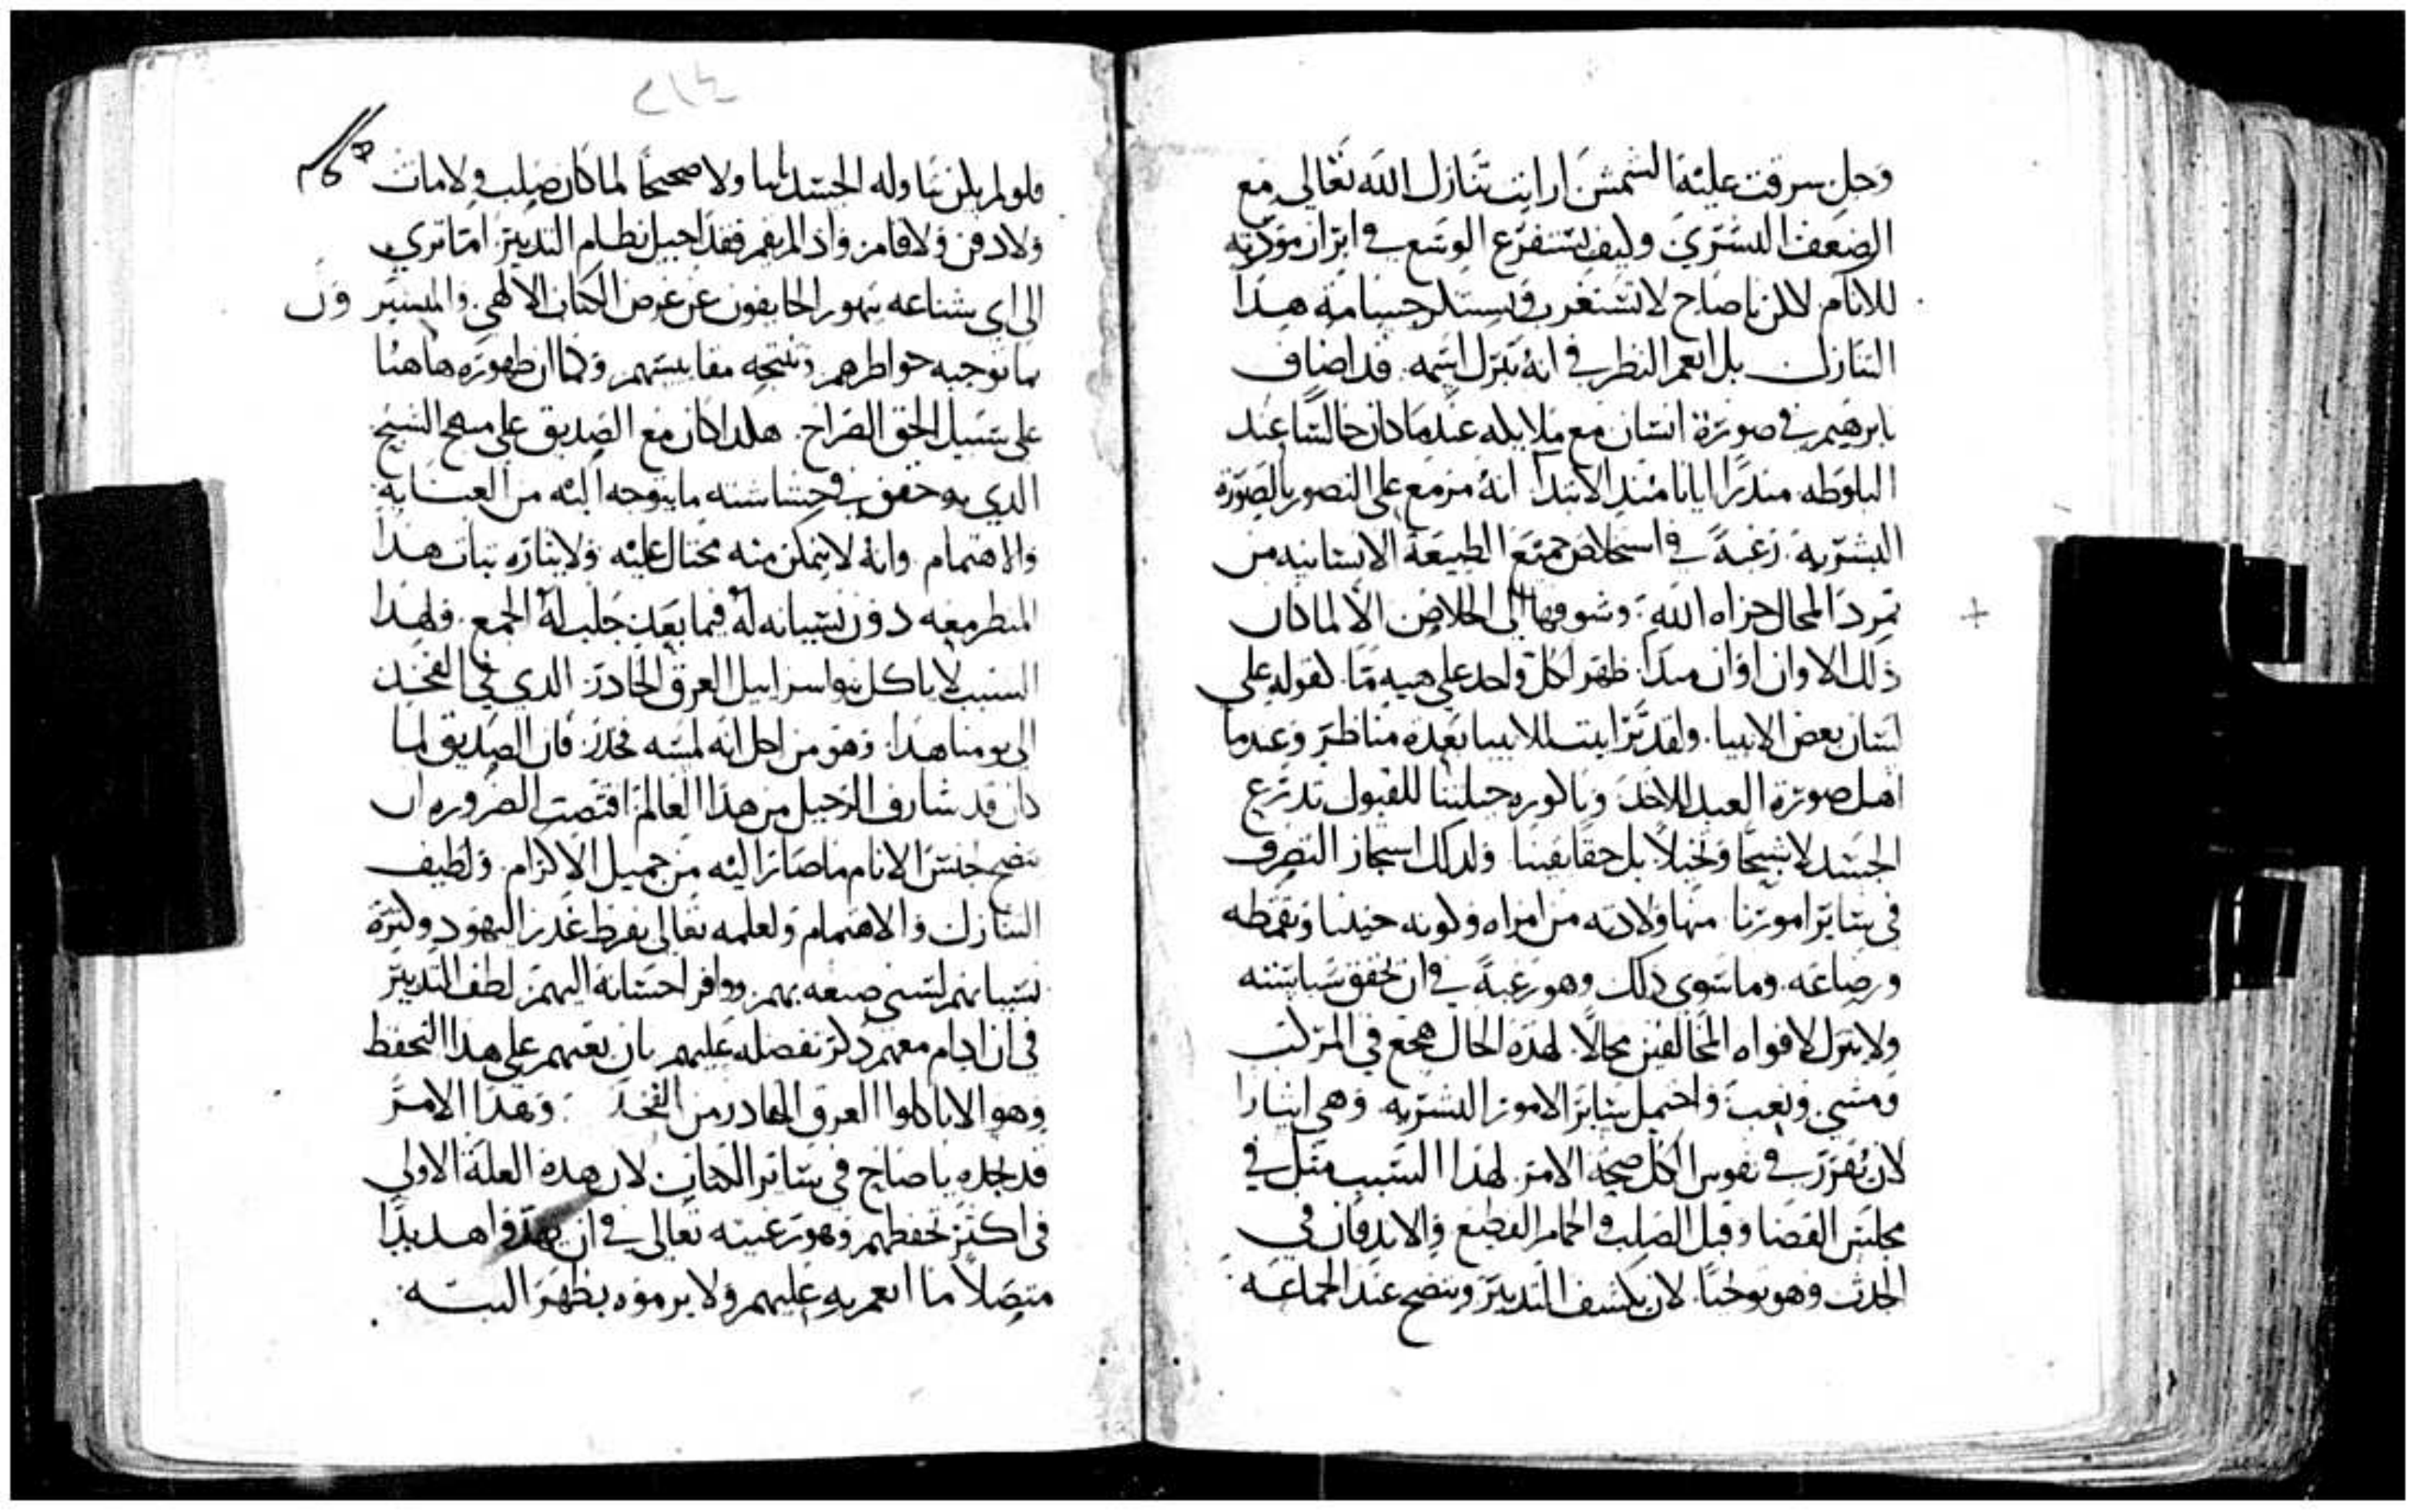 وحل سرقت عليه الشمس ارايت تنازل الله تعالى مع
الضعف البشري وكيف يستفرغ الوسع في ابراز مودته
للانام لكن يا صاح لا تستغرب وتستكر جسامة هدا
التنازل بل انعم النظر في انه تبرل اسمه قد اضاف
بابرهيم في صورة انسان مع ملايكه عندما كان جالسا عند
البلوطه مندرا ايانا مند الابتدا انه مزمع على التصور بالصورة
البشريه رغبة في استخلاص جميع الطبيعة الانسانيه من
تمرد المحال جزاه الله وشوقها الى الخلاص الا لما كان
ذلك الاوان اوان مبدا ظهر لكل واحد على هييه ما كقوله على
لسان بعض الانبيا ولقد ترايت للانبيا بعده مناظر وعندما
اهل صورة العبد للاخد وباكوره جبلتنا للقبول تدرع
الجسد لا شبحا وتخيلا بل حقا يقينا ولدلك استجاز التصرف
في ساير امورنا منها ولادته من امراه وكونه جنينا وتقمطه
ورضاعه وما سوى ذلك وهو رغبة في ان تحقق سياسته
ولا يترك لافواه المخالفين مجالا لهذه الحال هجع في المركب
ومشى وتعب واحتمل ساير الامور البشريه وهي ايثارا
لان تقرر في نفوس الكل صحة الامر لهذا السبب مثل في
مجلس القضا وقبل الصلب والحمام الفظيع والاندفان في
الجدث وهو توخيا لان يكشف التدبير ويتضح عند الجماعه
فلو لم يكن تناوله الجسد ولا صحيحا لما كان صلب ولا مات
ولا دفن ولا قام من واذ لم يقم فقد اختل نظام التدبير اما ترى
الى اي شناعه يتهور الحايفون عن غرض الكتاب الالهي والمسير ون
ما توجبه خواطرهم وتنتجه مقايستهم وكما ان ظهوره هاهنا
على سبيل الحق الصراح هكدا كان مع الصديق على منهج الشبح
الدي به حقق في حشاشته ما يتوجه اليه من العنايه
والاهتمام وانه لا يتمكن منه محتال عليه ولا يناره تبات هدا
المنظر معه دون تسبيانه له فيما بعد جلب له الجمع ولهدا
السبب لا ياكل بنو اسراييل العرق الخادر الدي في الفخد
الى يومنا هدا وهو من اجل انه لمسه فخدر فان الصديق لما
كان قد شارف الرحيل من هذا العالم اقتضت الضروره ان
يتضح جنس الانام ما صار اليه من جميل الاكرام ولطيف
التنازل والاهتمام ولعلمه تعالى بفرط غدر اليهود وكثرة
نسيانهم لسني صنعه بهم ووافر احسانه اليهم لطف التدبير
في ان ادام معهم دكر تفضله عليهم بان بعثهم على هدا التحفظ
وهو الا ياكلوا العرق الخادر من الفخد وهذا الامر
قد تجده يا صاح في ساير الكتاب لان هذه العلة الاولى
في اكثر تحفظهم وهو رغبته تعالى في ان يهذوا هديدا
متصلا ما انعم به عليهم ولا يرموه بظهر البته